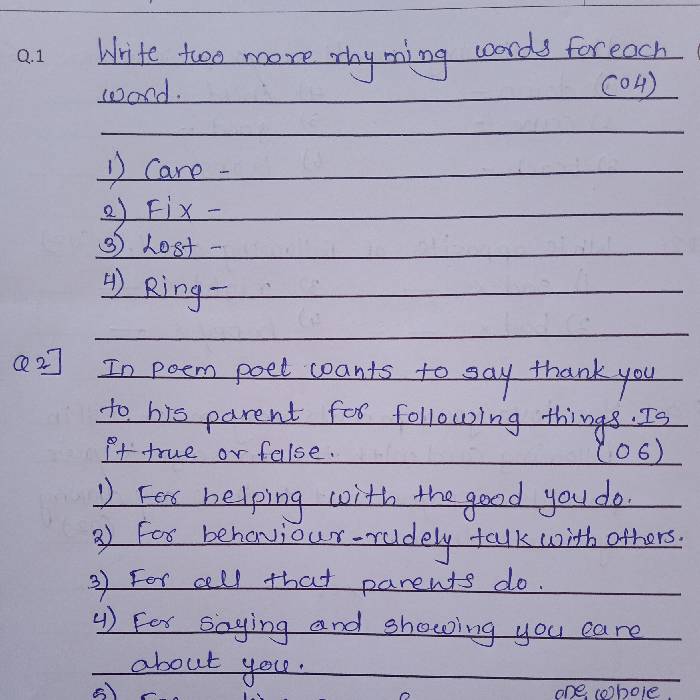 Q.1 Write two more rhyming words for each
word. (04)
1) Care -
2) Fix -
3) Lost -
4) Ring -
Q 2] In poem poet wants to say thank you
to his parent for following things. Is
it true or false. (06)
1) For helping with the good you do.
2) For behaviour-rudely talk with others.
3) For all that parents do.
4) For saying and showing you care
about you.
5) one, whole